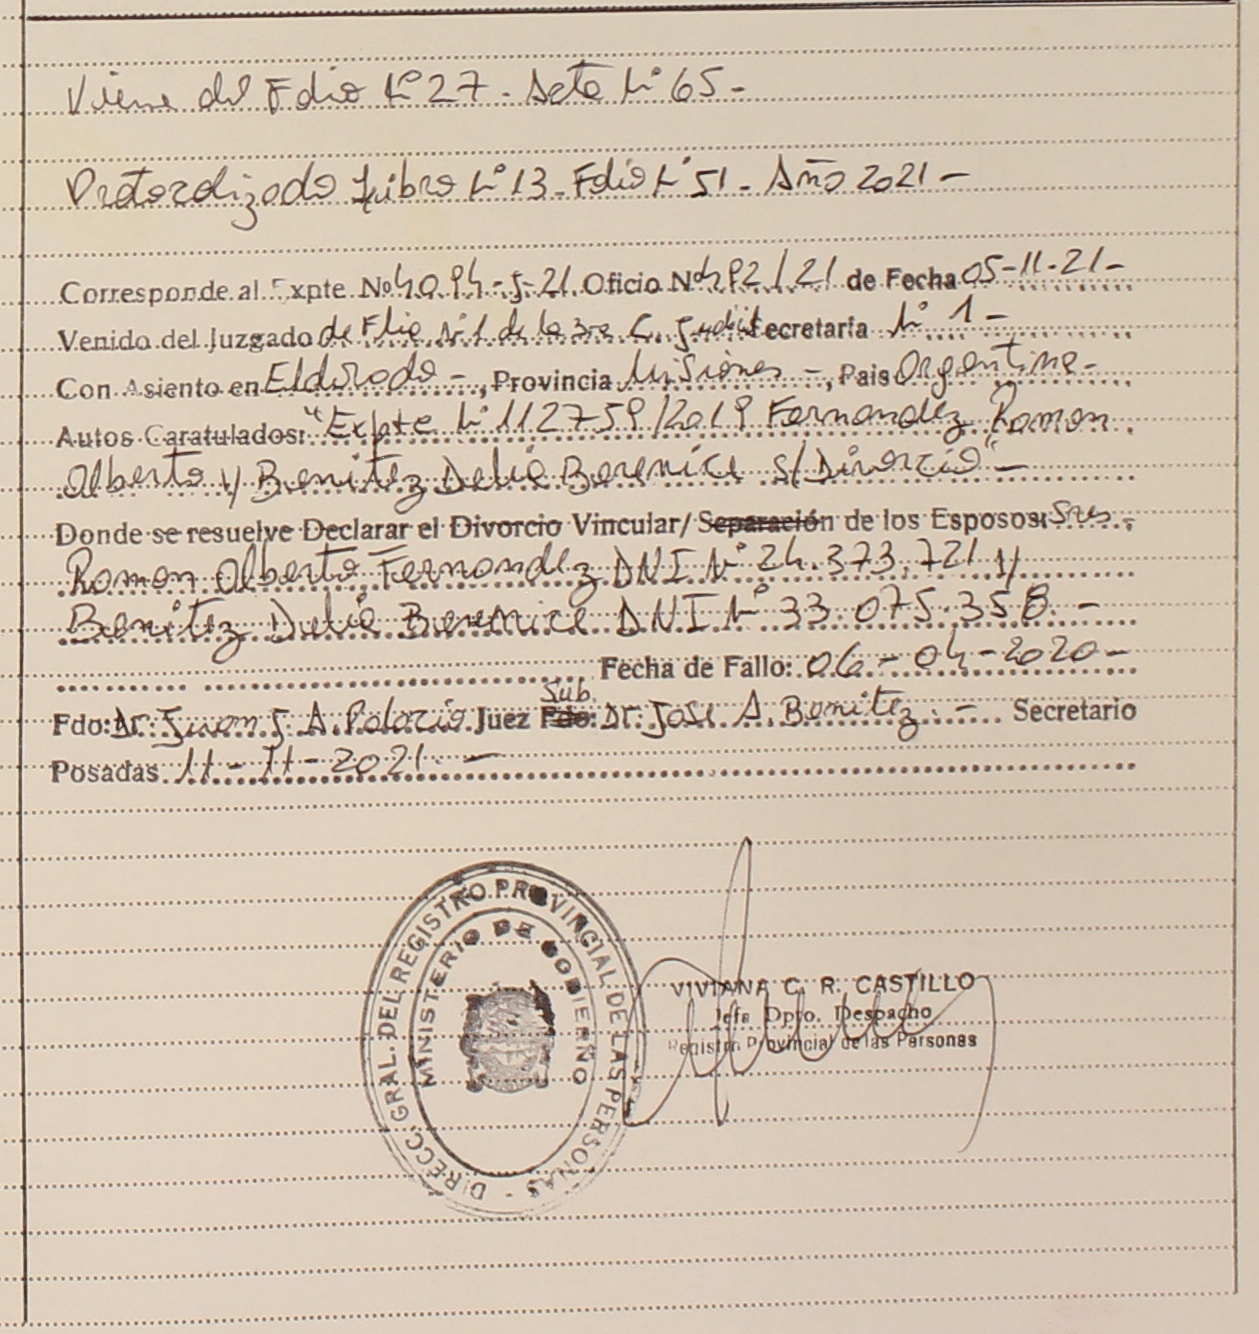 Viene del Folio N° 27 - Acta N° 65 -
Protocolizado Libro N° 13 - Folio N° 51 - Año 2021 -
Corresponde al Expte. Nº 4094-5-21 Oficio Nº 492/21 de Fecha 05-11-21 -
Venido del Juzgado de Flia N° 1 de la 3ra C. Judicial Secretaría N° 1 -
Con Asiento en Eldorado -, Provincia Misiones -, Pais Argentina -
Autos Caratulados: "Expte N° 112759/2019 Fernandez Ramon
Alberto y Benitez Delia Berenice S/Divorcio" -
Donde se resuelve Declarar el Divorcio Vincular/ Separación de los Esposos: Sres.
Ramon Alberto Fernandez DNI N° 24.373.721 y
Benitez Delia Berenice DNI N° 33.075.358. -
Fecha de Fallo: 06-04-2020 -
Fdo: Dr. Juan J. A. Palacio Juez Sub Fdo: Dr. Jose A. Benitez. - Secretario
Posadas 11-11-2021. -
DIRECC. GRAL. DEL REGISTRO PROVINCIAL DE LAS PERSONAS -
MINISTERIO DE GOBIERNO
VIVIANA C. R. CASTILLO
Jefa Dpto. Despacho
Registro Provincial de las Personas